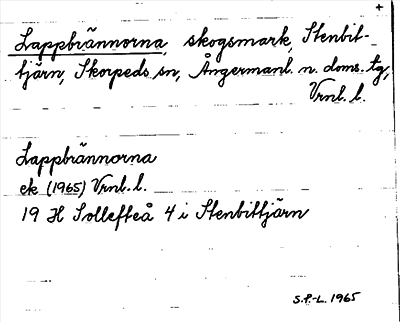 +
Lappbrännorna, skogsmark, Stenbit-
tjärn, Skorpeds sn, Ångermanl. n. doms. tg,
Vrnl. l.
Lappbrännorna
ek (1965) Vrnl. l.
19 H Sollefteå 4 i Stenbittjärn
S.P.-L. 1965